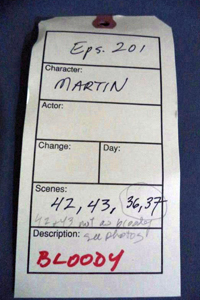 Eps. 201
Character:
MARTIN
Actor:
Change: Day:
Scenes:
42, 43, 36,37
42, 43 not as bloody
see photos
Description:
BLOODY